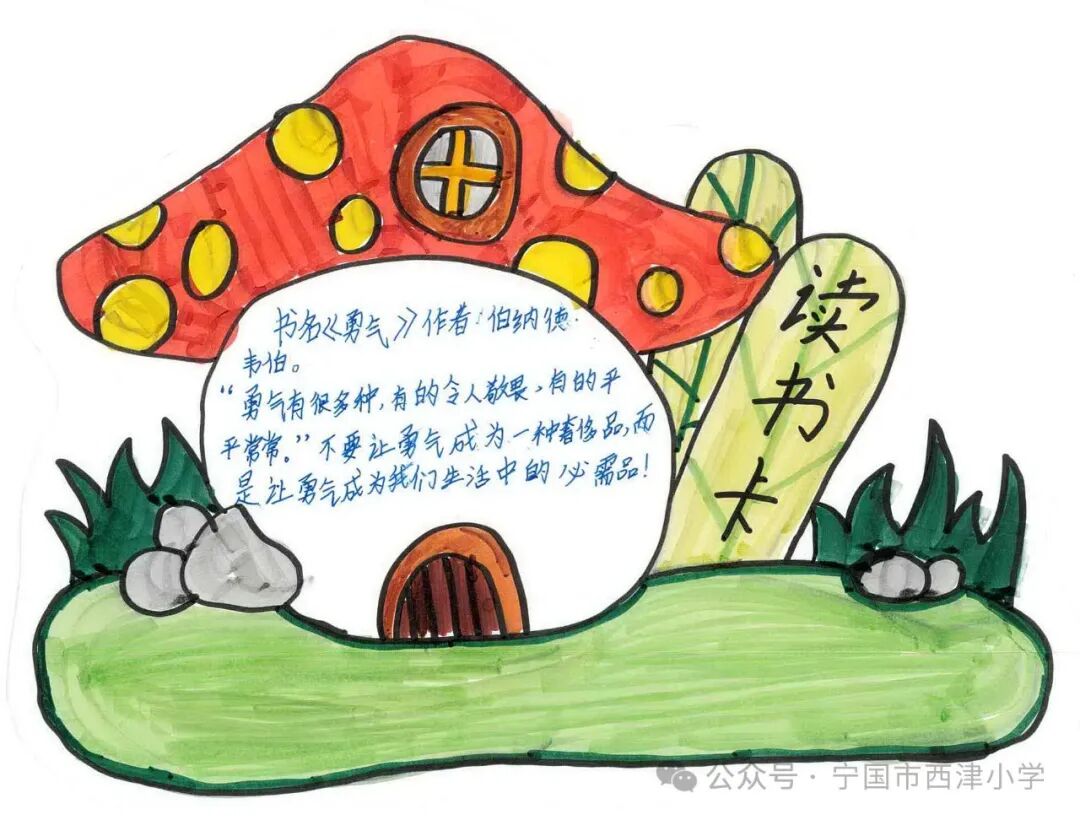 书名《勇气》作者:伯纳德·
韦伯。
“勇气有很多种,有的令人敬畏,有的平
平常常。”不要让勇气成为一种奢侈品,而
是让勇气成为我们生活中的必需品!
读书卡
公众号·宁国市西津小学